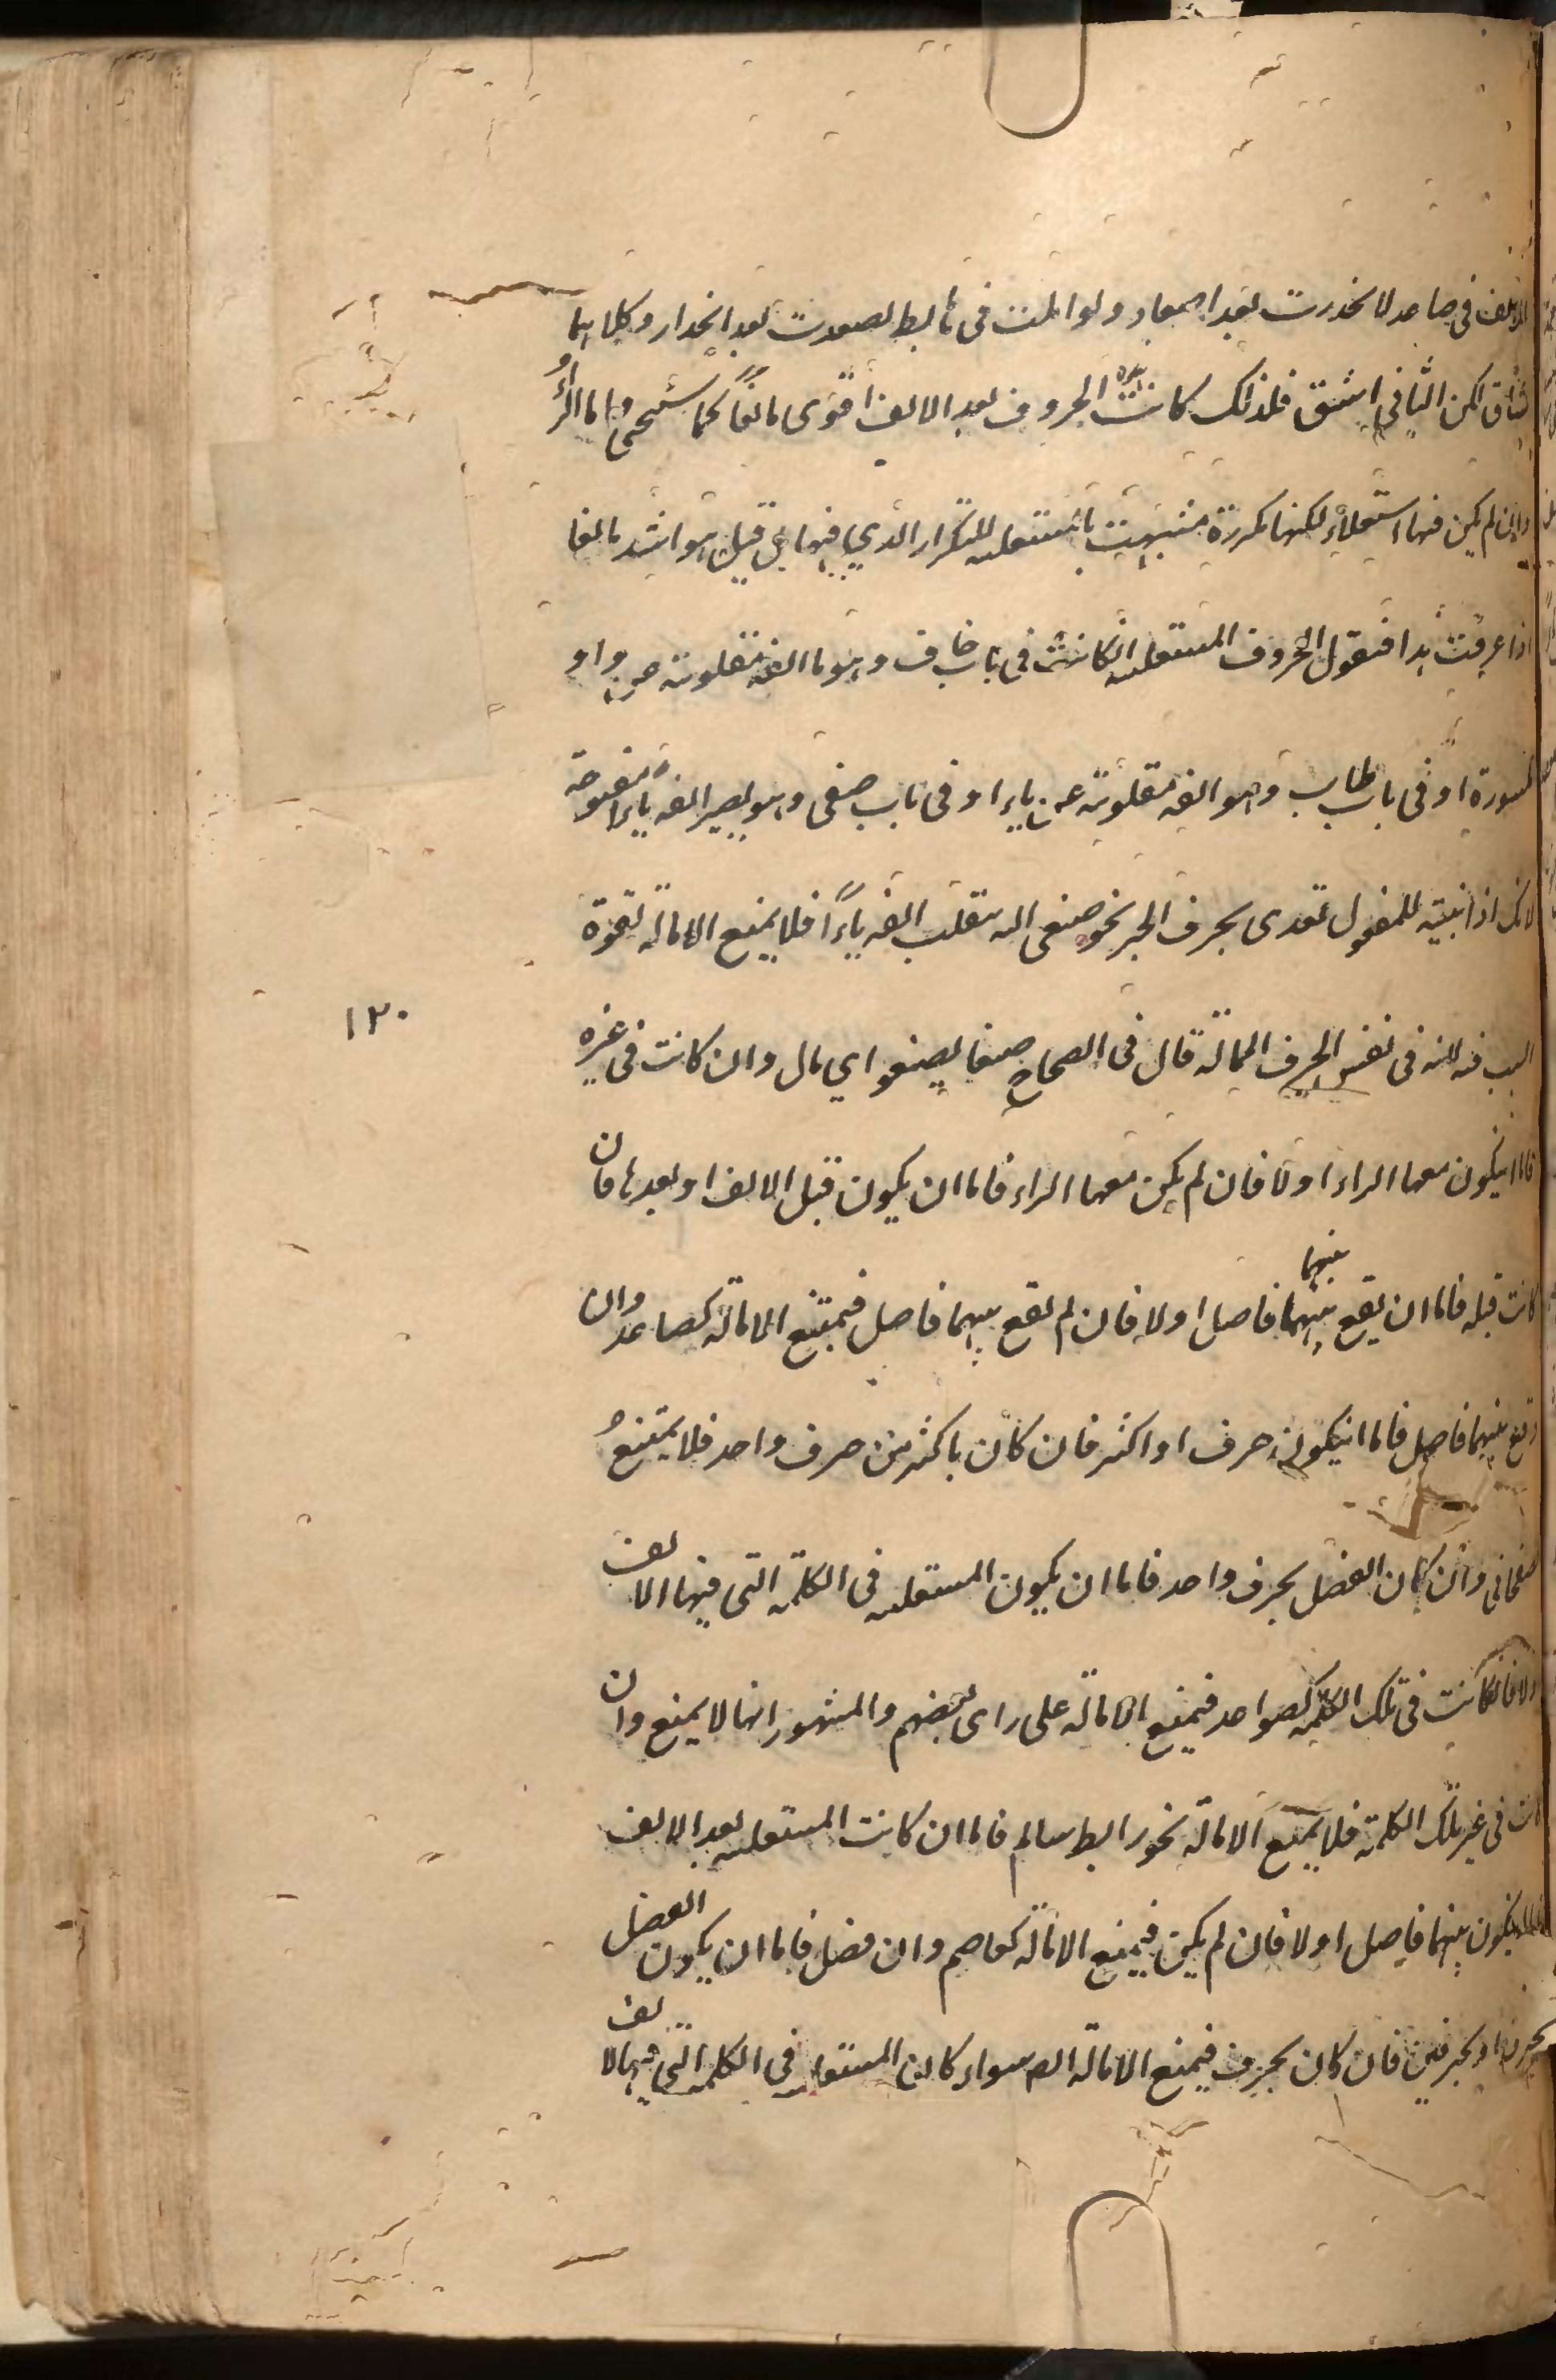 الالف فى صاعد لانحدرت بعد اصعاد ولو املت فى هابط لصعدت بعد انحدار وكلاهما
شاق لكن الثانى اشق فلذلك كانت هذه الحروف بعد الالف اقوى مانعا كما ستجئ واما الراء
وان لم يكن فيها استعلاء لكنها مكررة فشبهت بالمستعلية للتكرار الذي فيها بل قيل هو اشد مانعا
اذا عرفت هذا فنقول الحروف المستعلية ان كانت فى باب خاف وهو ما الفه مقلوبة عن واو
مكسورة او فى باب طاب وهو الفه مقلوبة عن ياء او فى باب صغى وهو يصير الفه ياء مفتوحة
لانك اذا بنيته للمفعول تعدى بحرف الجر نحو صغى اليه تقلب الفه ياءً فلا يمنع الامالة لقوة
السبب فيه لانه فى نفس الحرف الممالة قال فى الصحاح صغا يصغو اي مال وان كانت فى غيره
١٣٠
فاما ان يكون معها الراء اولا فان لم يكن معها الراء فاما ان يكون قبل الالف او بعدها فان
كانت قبله فاما ان يقع بينهما بينهما فاصل اولا فان لم يقع بينهما فاصل فيمتنع الامالة كصاعد وان
وقع بينهما فاصل فاما ان يكون حرف او اكثر فان كان باكثر من حرف واحد فلا يمتنع
وان كان الفصل بحرف واحد فاما ان يكون المستعلية فى الكلمة التى فيها الالف
اولا فان كانت فى تلك الكلمة كصواعد فيمنع الامالة على راى بعضهم والمشهور انها لا يمنع وان
كانت فى غير تلك الكلمة فلا يمنع الامالة نحو رابط سالم فاما ان كانت المستعلية بعد الالف
فاما ان يكون بينهما فاصل اولا فان لم يكن فيمنع الامالة كعاصم وان فصل فاما ان يكون الفصل
بحرف او بحرفين فان كان بحرف فيمنع الامالة سواء كان المستعلية فى الكلمة التى فيها الالف